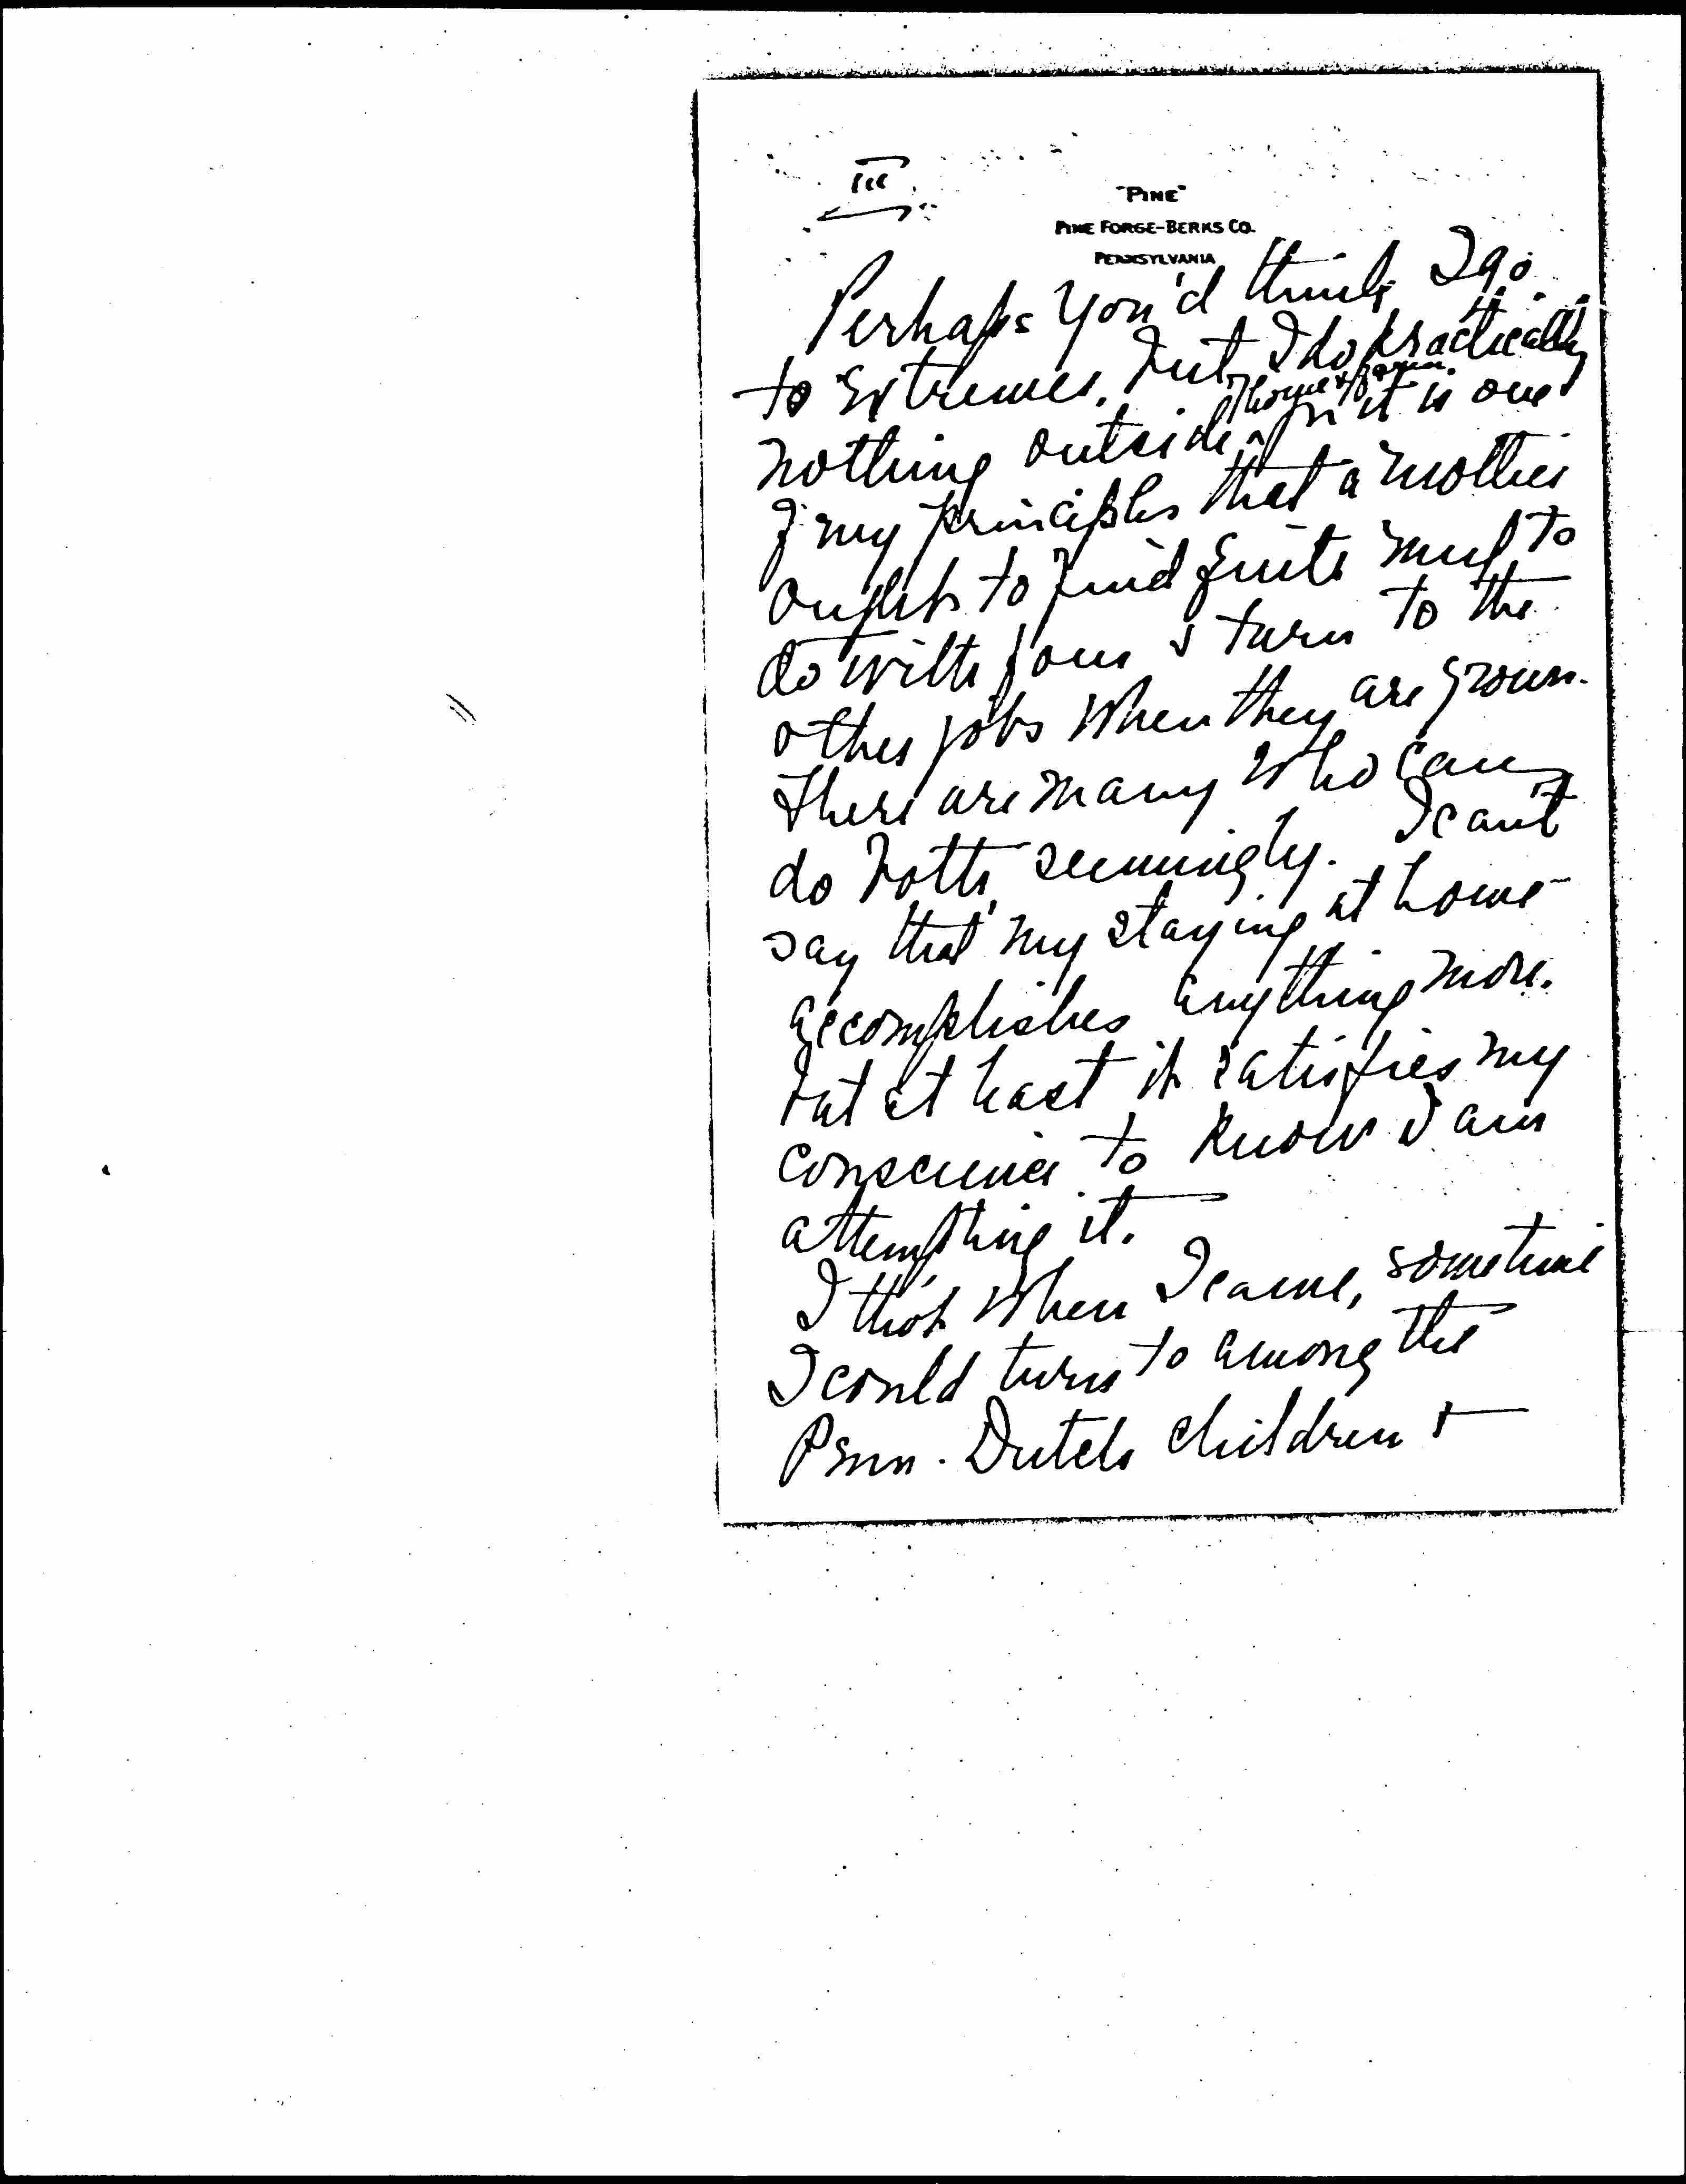 III
"PINE"
PINE FORGE-BERKS CO.
PENNSYLVANIA
Perhaps you'd think I go
to extremes, but I do practically
nothing outside home & farm for it is one
of my principles that a mother
ought to find quite enuf to
do with four & turn to the
other jobs when they are grown.
There are many who can
do both seemingly. I can't
say that my staying at home
accomplishes anything more.
but at least it satisfies my
conscience to know I am
attempting it.
I tho't when I came, sometime
I could turn to among the
Penn. Dutch children &